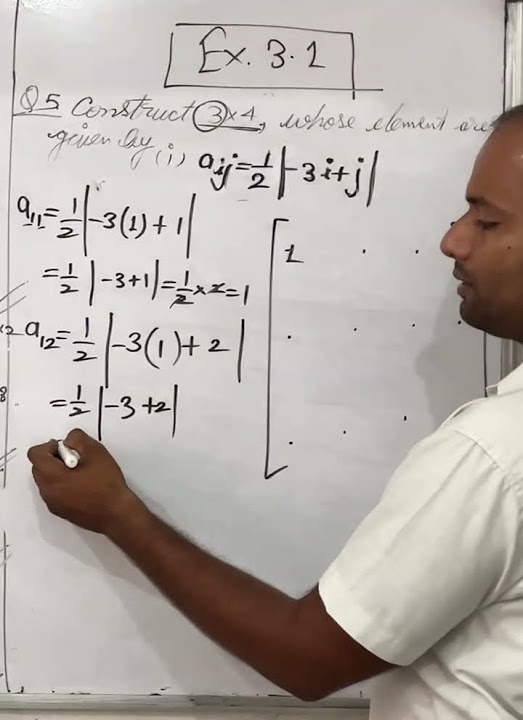 Ex. 3.1
Q5 Construct 3×4, whose element are
given by (i) aij = 1/2 |-3i+j|
a11 = 1/2 |-3(1) + 1|
= 1/2 |-3+1| = 1/2 × 2 = 1
a12 = 1/2 |-3(1) + 2|
= 1/2 |-3 +2|
1